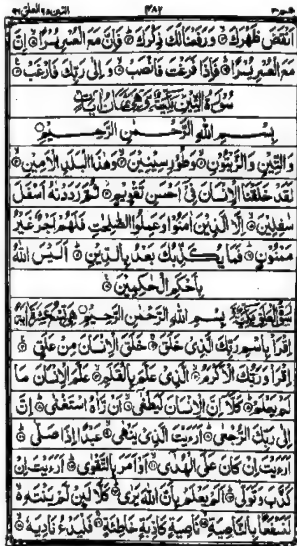 التين ٩٥ العلق ٩٦ ٣٨٢ عم ٣٠
اَنْقَضَ ظَهْرَكَ ۝ وَرَفَعْنَا لَكَ ذِكْرَكَ ۝ فَاِنَّ مَعَ الْعُسْرِ يُسْرًا ۝ اِنَّ
مَعَ الْعُسْرِ يُسْرًا ۝ فَاِذَا فَرَغْتَ فَانْصَبْ ۝ وَاِلٰى رَبِّكَ فَارْغَبْ ۝
سُوْرَةُ التِّيْنِ مَكِّيَّةٌ وَّهِيَ ثَمَانُ اٰيَاتٍ
بِسْمِ اللّٰهِ الرَّحْمٰنِ الرَّحِيْمِ
وَالتِّيْنِ وَالزَّيْتُوْنِ ۝ وَطُوْرِ سِيْنِيْنَ ۝ وَهٰذَا الْبَلَدِ الْاَمِيْنِ ۝
لَقَدْ خَلَقْنَا الْاِنْسَانَ فِيْ اَحْسَنِ تَقْوِيْمٍ ۝ ثُمَّ رَدَدْنٰهُ اَسْفَلَ
سٰفِلِيْنَ ۝ اِلَّا الَّذِيْنَ اٰمَنُوْا وَعَمِلُوا الصّٰلِحٰتِ فَلَهُمْ اَجْرٌ غَيْرُ
مَمْنُوْنٍ ۝ فَمَا يُكَذِّبُكَ بَعْدُ بِالدِّيْنِ ۝ اَلَيْسَ اللّٰهُ
بِاَحْكَمِ الْحٰكِمِيْنَ ۝
بِسْمِ اللّٰهِ الرَّحْمٰنِ الرَّحِيْمِ
اِقْرَاْ بِاسْمِ رَبِّكَ الَّذِيْ خَلَقَ ۝ خَلَقَ الْاِنْسَانَ مِنْ عَلَقٍ ۝
اِقْرَاْ وَرَبُّكَ الْاَكْرَمُ ۝ الَّذِيْ عَلَّمَ بِالْقَلَمِ ۝ عَلَّمَ الْاِنْسَانَ مَا
لَمْ يَعْلَمْ ۝ كَلَّا اِنَّ الْاِنْسَانَ لَيَطْغٰى ۝ اَنْ رَّاٰهُ اسْتَغْنٰى ۝ اِنَّ
اِلٰى رَبِّكَ الرُّجْعٰى ۝ اَرَءَيْتَ الَّذِيْ يَنْهٰى ۝ عَبْدًا اِذَا صَلّٰى ۝
اَرَءَيْتَ اِنْ كَانَ عَلَى الْهُدٰى ۝ اَوْ اَمَرَ بِالتَّقْوٰى ۝ اَرَءَيْتَ اِنْ
كَذَّبَ وَتَوَلّٰى ۝ اَلَمْ يَعْلَمْ بِاَنَّ اللّٰهَ يَرٰى ۝ كَلَّا لَئِنْ لَّمْ يَنْتَهِ ۝
لَنَسْفَعًا بِالنَّاصِيَةِ ۝ نَاصِيَةٍ كَاذِبَةٍ خَاطِئَةٍ ۝ فَلْيَدْعُ نَادِيَهٗ ۝